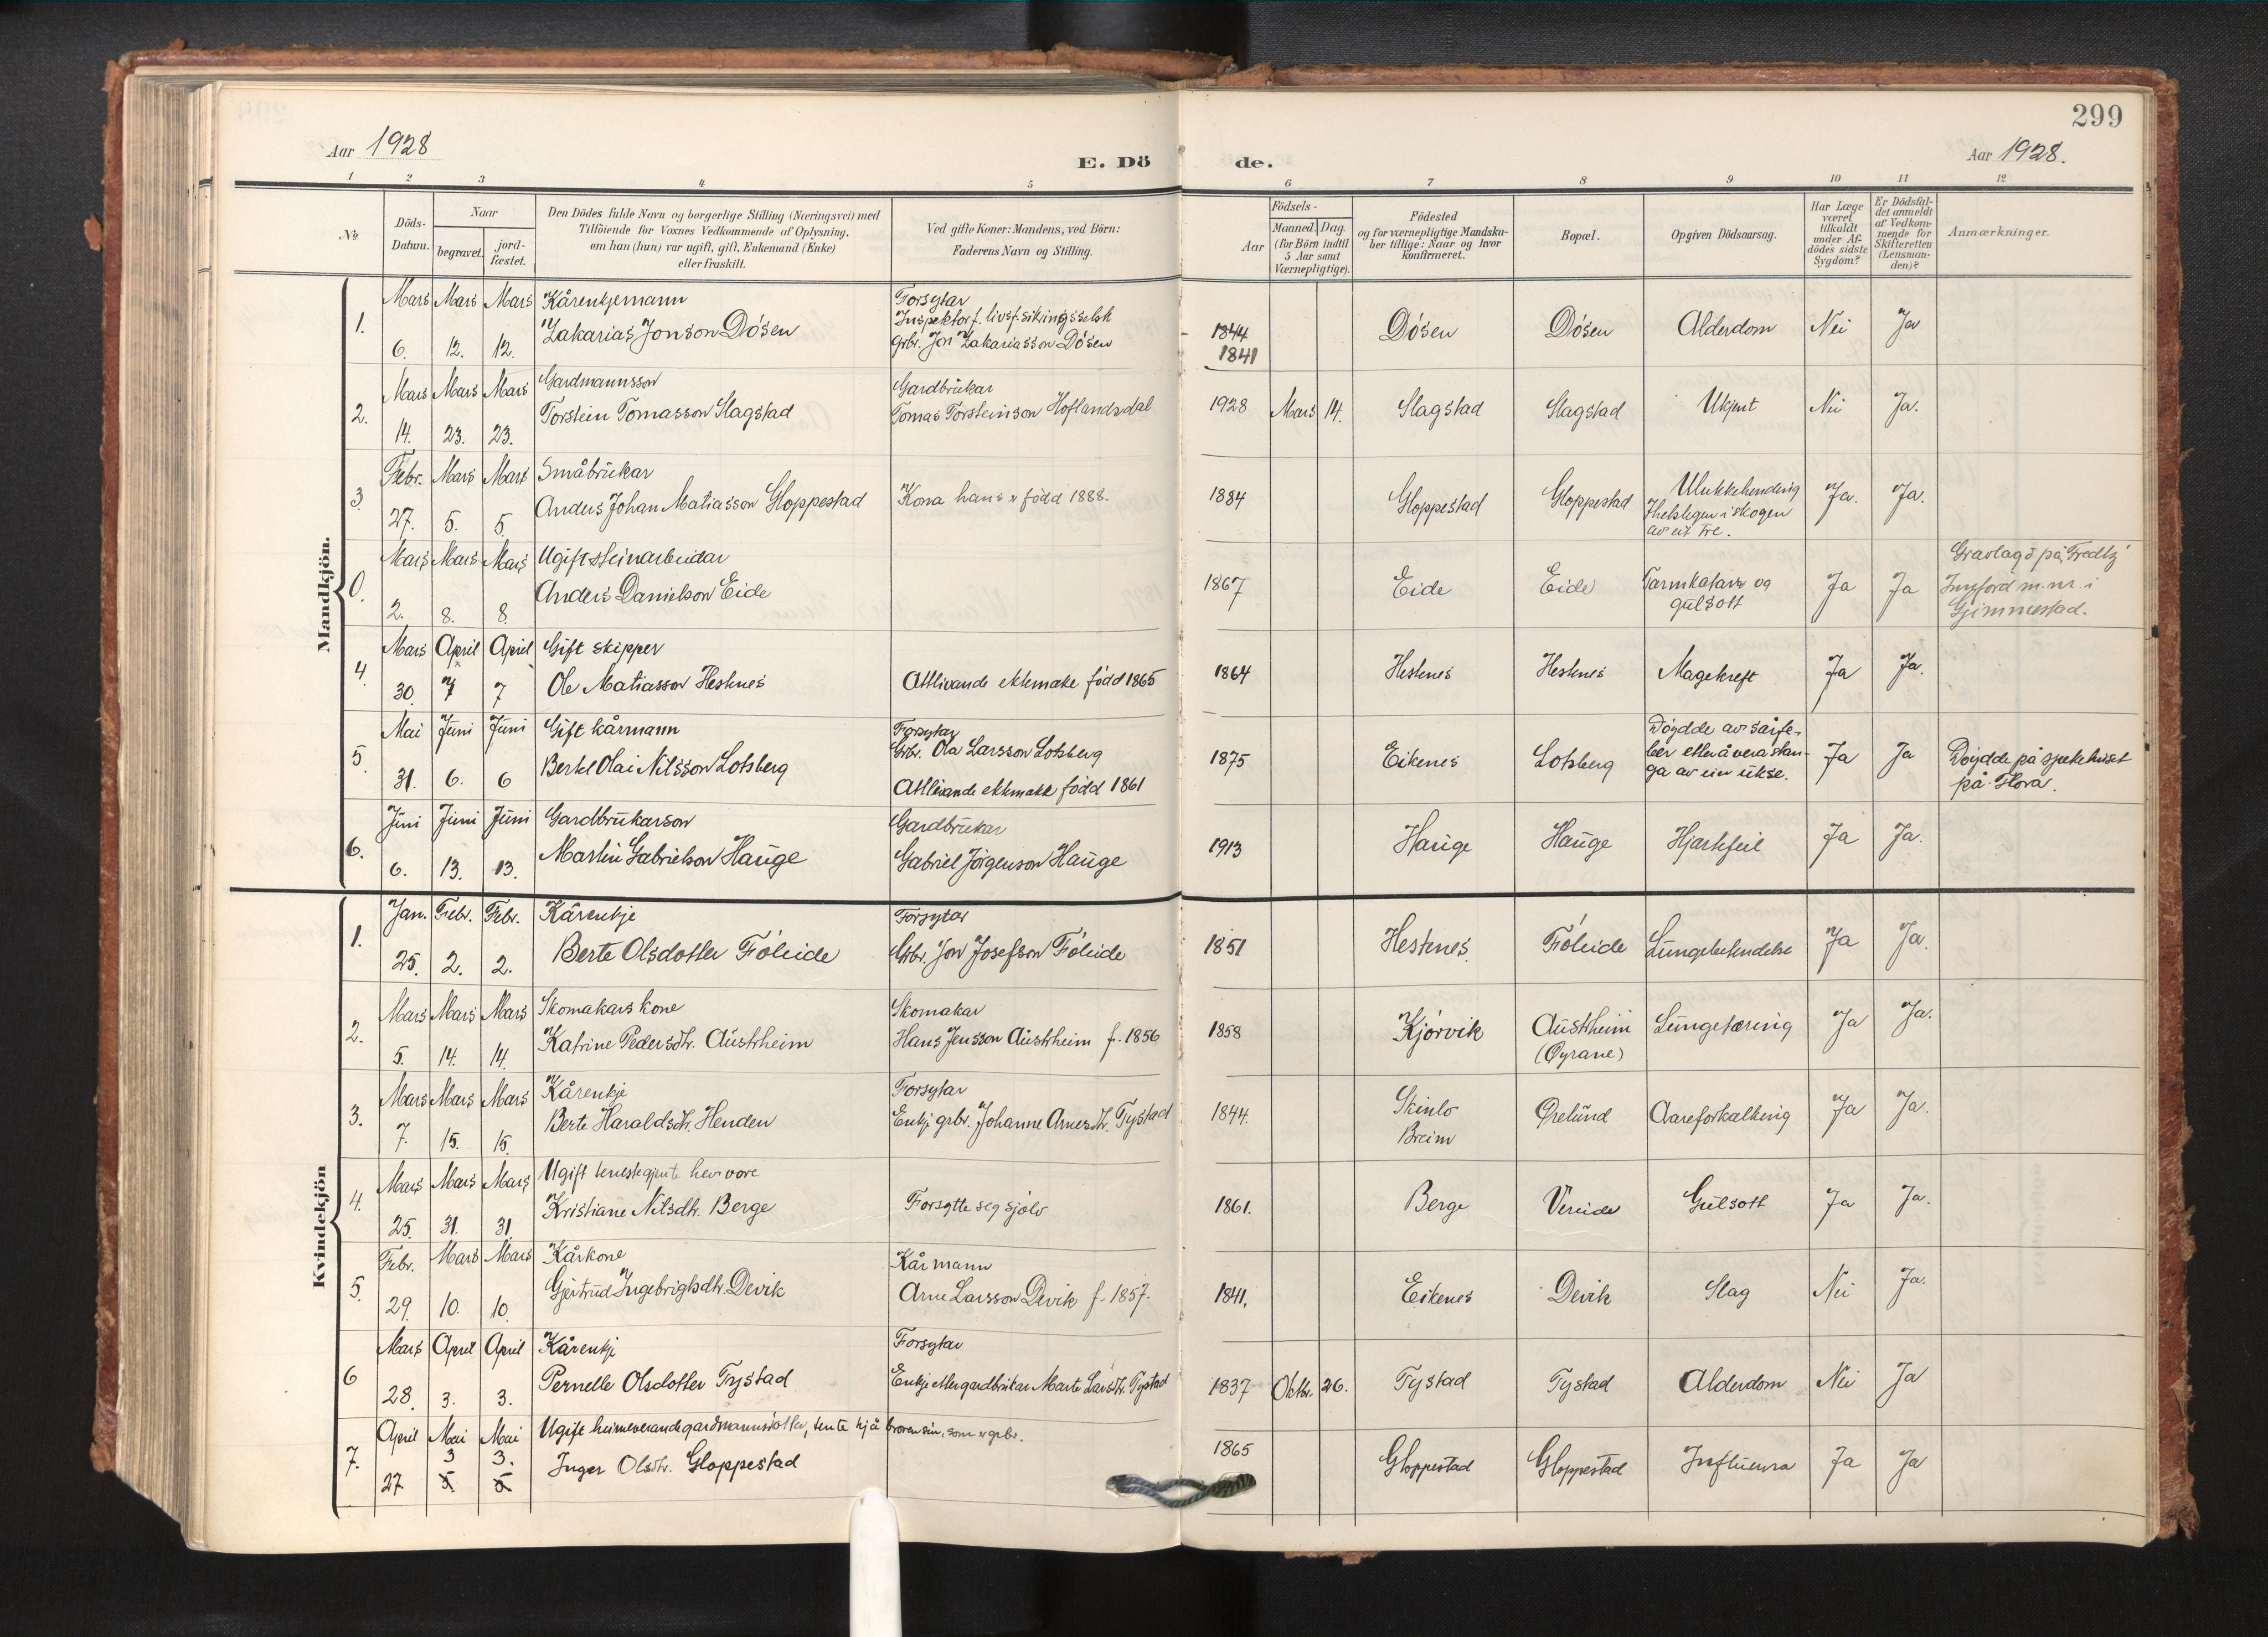 299
Aar 1928
E. Dö de.
Aar 1928.
1 2 3 4 5 6 7 8 9 10 11 12
No
Döds-Datum.
Naar
begravet.
jord-fæstet.
Den Dödes fulde Navn og borgerlige Stilling (Næringsvei) med
Tilföiende for Voxnes Vedkommende af Oplysning,
om han (hun) var ugift, gift, Enkemand (Enke)
eller fraskilt.
Ved gifte Koner: Mandens, ved Börn:
Faderens Navn og Stilling.
Födsels-
Aar
Maaned. Dag.
(for Börn indtil
5 Aar samt
Værnepligtige).
Födested
og for værnepligtige Mandska-
ber tillige: Naar og hvor
konfirmeret.
Bopæl.
Opgiven Dödsaarsag.
Har Læge
været
tilkaldt
under Af-
dödes sidste
Sygdom?
Er Dödsfal-
det anmeldt
af Vedkom-
mende for
Skifteretten
(Lensman-
den)?
Anmærkninger.
Mandkjön.
1. Mars 6. Mars 12. Mars 12. Kårenkjemann
Zakarias Jonson Dósen
Forsytar
Inspektor f. livsf.sikringsselsk
grbr. Jon Zakariasson Dósen
1844
1841
Dósen Dósen Alderdom Nei Ja
2. Mars 14. Mars 23. Mars 23. Gardmannsson
Torstein Tomasson Slagstad
Gardbrukar
Tomas Torsteinson Hoflandsdal
1928 Mars 14. Slagstad Slagstad Ukjent Nei Ja.
3 Febr. 27. Mars 5. Mars 5 Småbrukar
Anders Johan Matiasson Gloppestad
Kona hans er född 1888.
1884 Gloppestad Gloppestad Ulukkehending
Ihelslegen i skogen
av eit tre.
Ja. Ja.
0. Mars 2. Mars 8. Mars 8. Ugift steinarbeidar
Anders Danielson Eide
1867 Eide Eide Tarmkatarr og
gulsott
Ja Ja
Gravlagd på Fredly
Innförd m. nr. i
Gimmestad.
4. Mars 30. April 7 April 7 Gift skipper
Ole Matiasson Hestnes
Attlivande ektemake född 1865
1864 Hestnes Hestnes Magekreft Ja Ja.
5. Mai 31. Juni 6. Juni 6 Gift kårmann
Bertel Olai Nilsson Lotsberg
Forsytar
Grbr. Ola Larsson Lotsberg
Attlivande ektemake född 1861
1875 Eikenes Lotsberg Döydde av sårfe-
ber etter å vera stan-
ga av ein ukse.
Ja Ja
Döydde på sjukehuset
på Flora.
6. Juni 6. Juni 13. Juni 13. Gardbrukarson
Martin Gabrielson Hauge
Gardbrukar
Gabriel Jörgenson Hauge
1913 Hauge Hauge Hjartefeil Ja Ja.
Kvindekjön
1. Jan. 25. Febr. 2. Febr. 2. Kårenkje
Berte Olsdotter Fóleide
Forsytar
Grbr. Jon Josefson Fóleide
1851 Hestenes. Fóleide Lungebetendelse Ja Ja.
2. Mars 5. Mars 14. Mars 14. Skomakars kone
Katrine Pedersdtr. Austrheim
Skomakar
Hans Jensson Austrheim f. 1856
1858 Kjórvik Austrheim
(Öyrane)
Lungetæring Ja Ja.
3. Mars 7. Mars 15. Mars 15. Kårenkje
Berte Haraldsdtr. Henden
Forsytar
Enkje grbr. Johanne Arnesdtr. Tystad
1844. Skinlo
Breim
Örelund Aareforkalking Ja Ja.
4. Mars 25. Mars 31. Mars 31. Ugift tenestegjente hev vore
Kristiane Nilsdtr. Berge
Forsytte seg sjölv
1861. Berge Vereide Gulsott Ja Ja.
5. Febr. 29. Mars 10. Mars 10. Kårkone
Gjertrud Ingebrigtsdtr. Devik
Kårmann
Arne Larsson Devik f. 1857.
1841. Eikenes Devik Slag Nei Ja.
6 Mars 28. April 3. April 3. Kårenkje
Pernelle Olsdotter Tystad
Forsytar
Enkje etter gardbrukar Marte Larsdtr. Tystad
1837 Oktbr. 26. Tystad Tystad Alderdom Nei Ja
7. April 27. Mai 3 5. Mai 3. 5 Ugift heimeverande gardmannsdotter, tente hjå broren sin, som er grbr.
Inger Olsdtr. Gloppestad
1865 Gloppestad Gloppestad Influensa Ja Ja